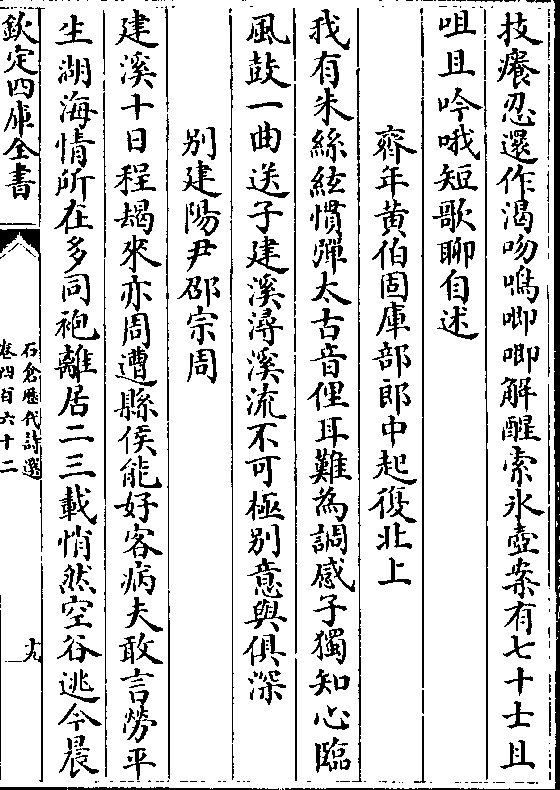 技癢忍還作渴吻鳴唧唧解酲索氷壺案有七十士且
咀且吟哦短歌聊自述
齊年黄伯固庫部郎中起復北上
我有朱絲絃慣彈太古音俚耳難為調感子獨知心臨
風鼓一曲送子建溪潯溪流不可極别意與俱深
别建陽尹邵宗周
建溪十日程朅來亦周遭縣侯能好客病夫敢言勞平
生湖海情所在多同袍離居二三載悄然空谷逃今晨
欽定四庫全書
石倉歷代詩選
卷四百六十二
十九